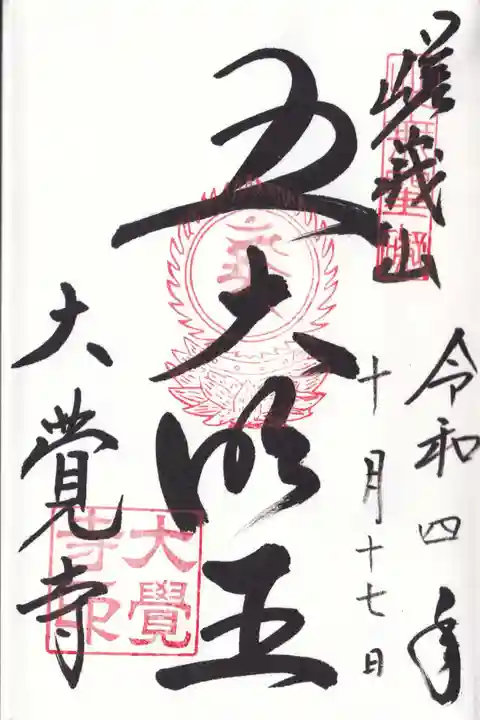 嵯峨山
令和四年
十月十七日
五大明王
大覺寺
大覺
寺印